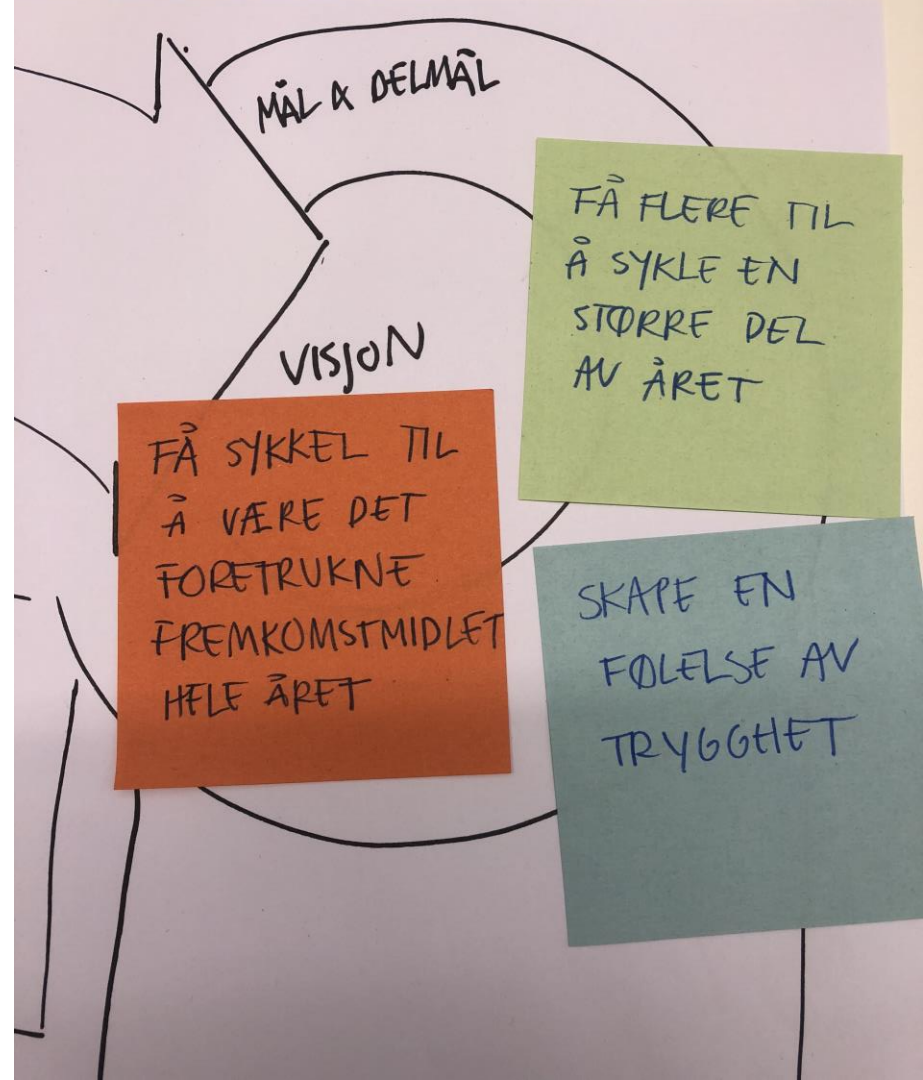 MÅL & DELMÅL
FÅ FLERE TIL
Å SYKLE EN
STØRRE DEL
AV ÅRET
VISJON
FÅ SYKKEL TIL
Å VÆRE DET
FORETRUKNE
FREMKOMSTMIDLET
HELE ÅRET
SKAPE EN
FØLELSE AV
TRYGGHET